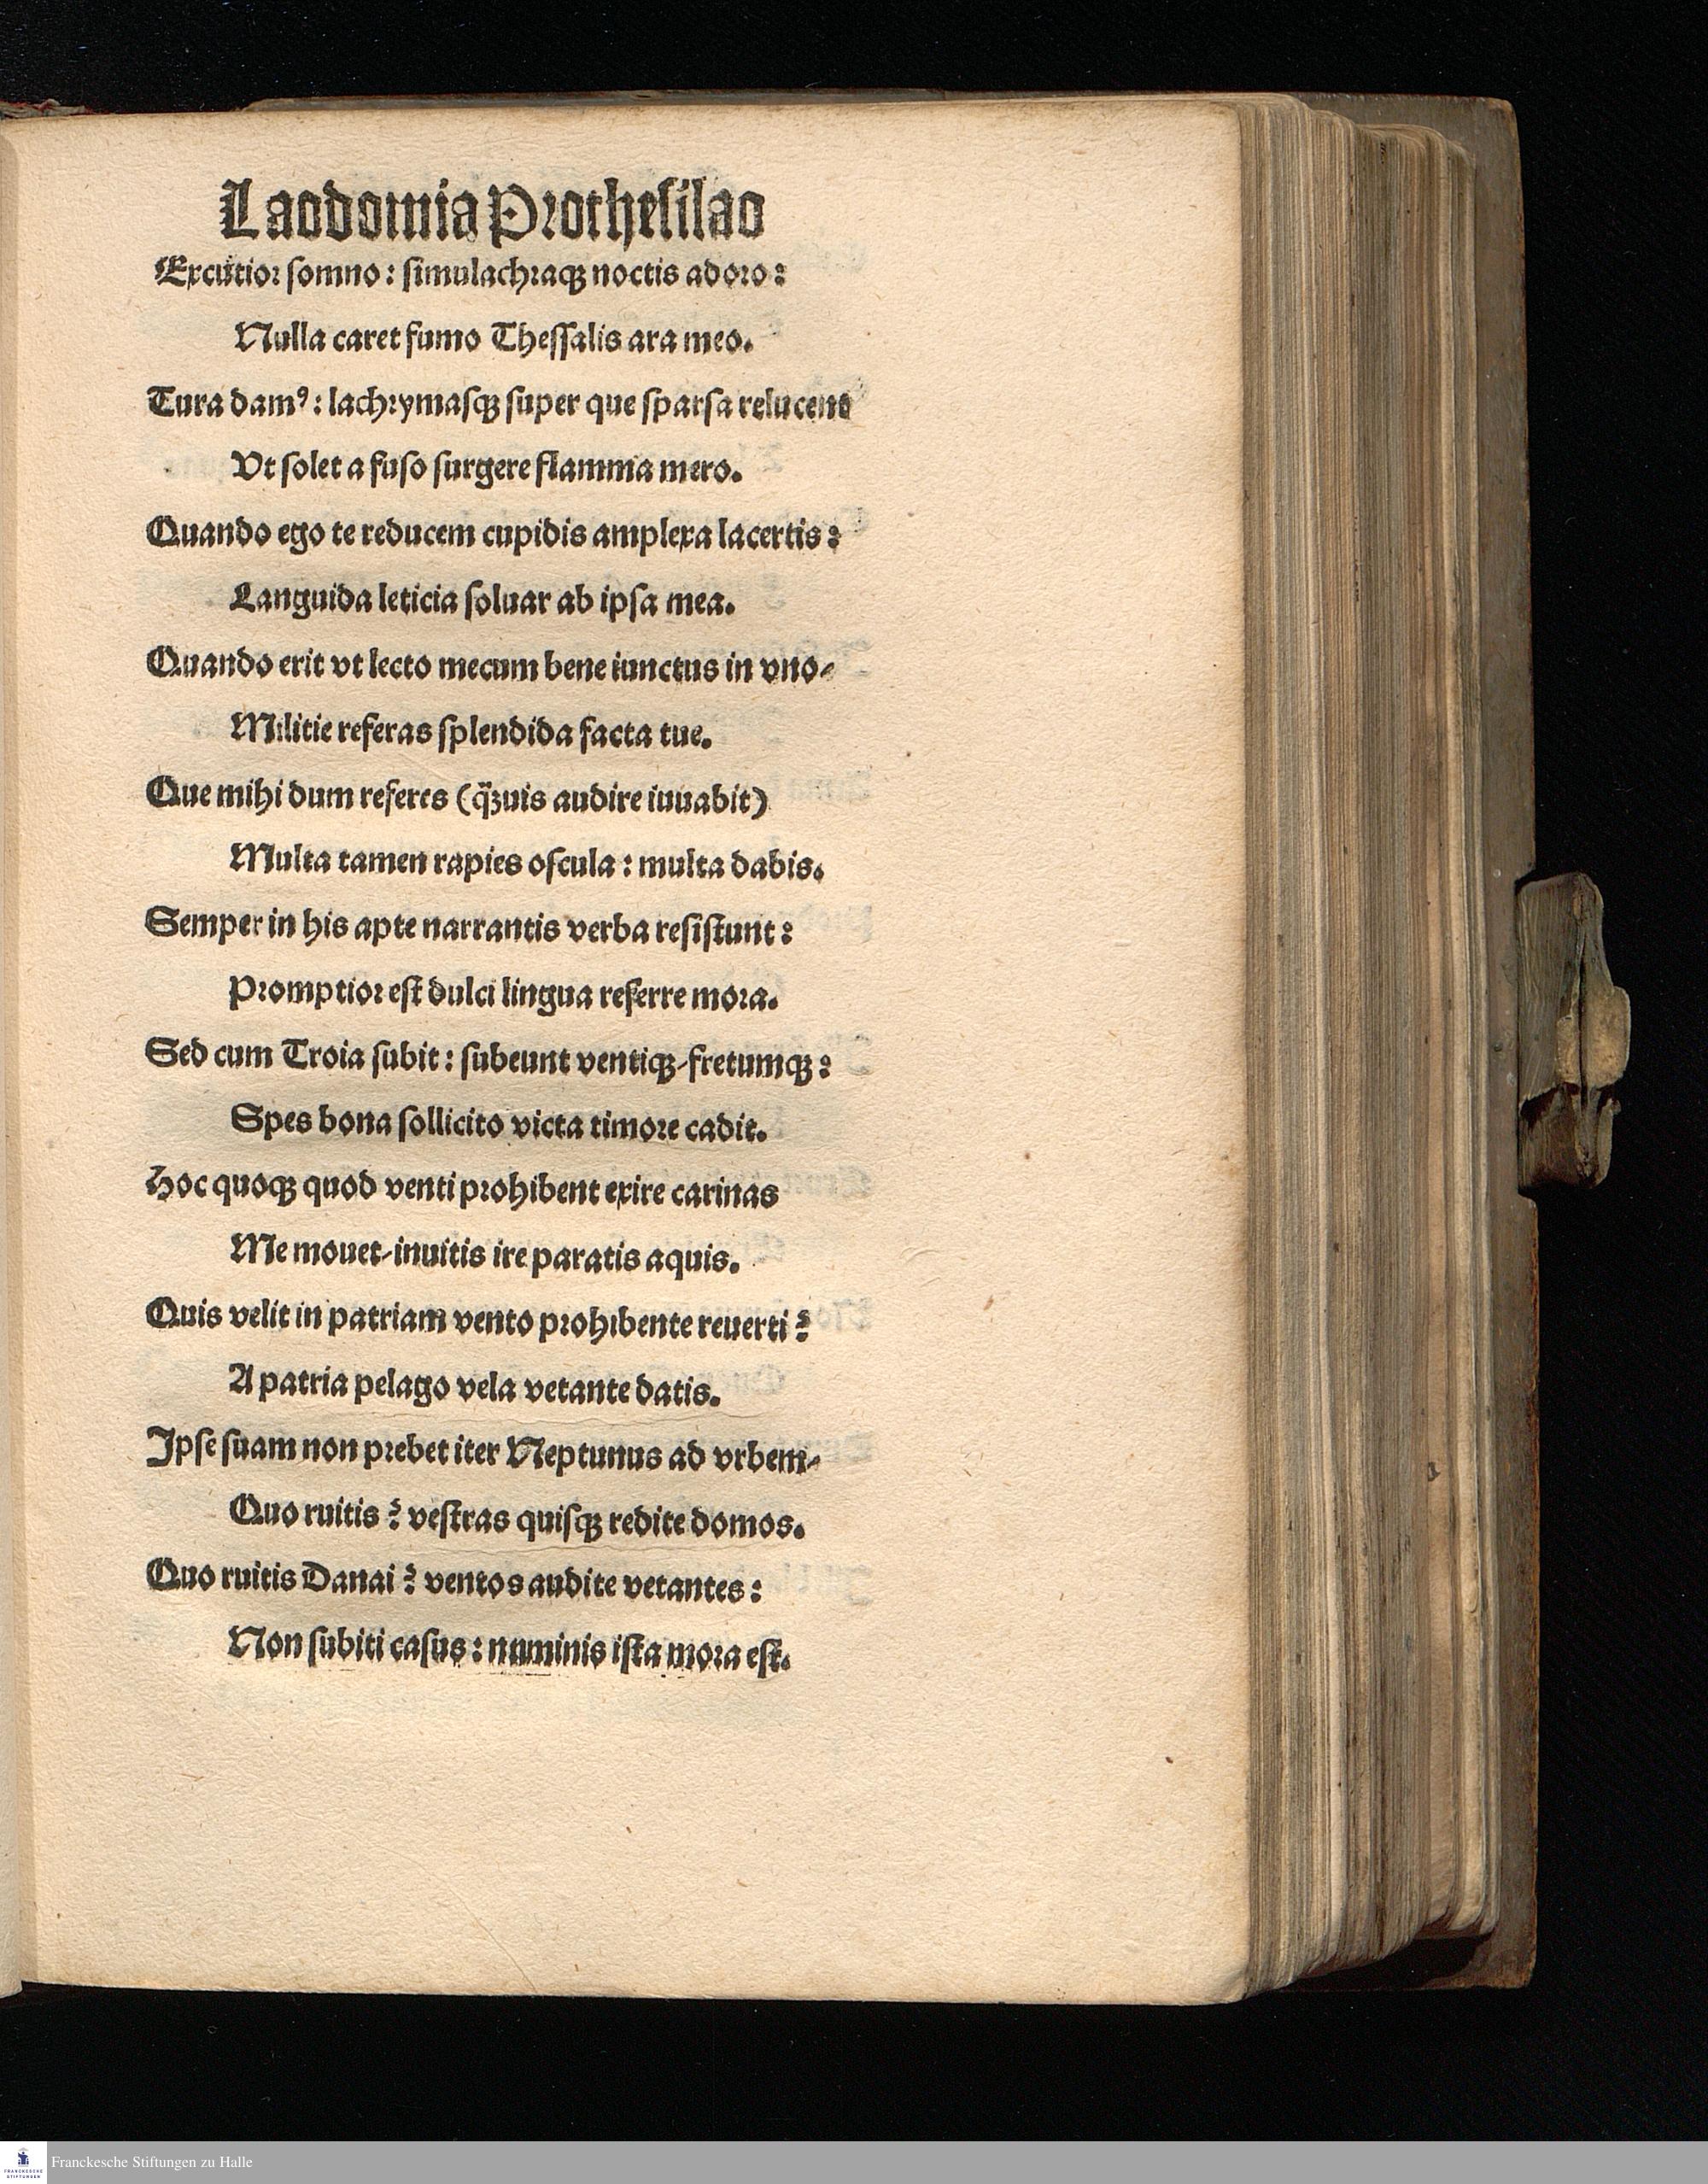 Laodomia Prothesilao
Excutior somno: simulachraqꝫ noctis adoro:
Nulla caret fumo Thessalis ara meo.
Tura damꝰ: lachrymasqꝫ super que sparsa relucent
Vt solet a fuso surgere flamma mero.
Quando ego te reducem cupidis amplexa lacertis:
Languida leticia soluar ab ipsa mea.
Quando erit vt lecto mecum bene iunctus in vno/
Militie referas splendida facta tue.
Que mihi dum referes (q̃ꝫuis audire iuuabit)
Multa tamen rapies oscula: multa dabis.
Semper in his apte narrantis verba resistunt:
Promptior est dulci lingua referre mora.
Sed cum Troia subit: subeunt ventiqꝫ/fretumqꝫ:
Spes bona sollicito victa timore cadit.
Hoc quoqꝫ quod venti prohibent exire carinas
Me mouet/inuitis ire paratis aquis.
Quis velit in patriam vento prohibente reuerti?
A patria pelago vela vetante datis.
Ipse suam non prebet iter Neptunus ad vrbem/
Quo ruitis? vestras quisqꝫ redite domos.
Quo ruitis Danai? ventos audite vetantes:
Non subiti casus: numinis ista mora est.
Franckesche Stiftungen zu Halle
FRANCKESCHE
STIFTUNGEN